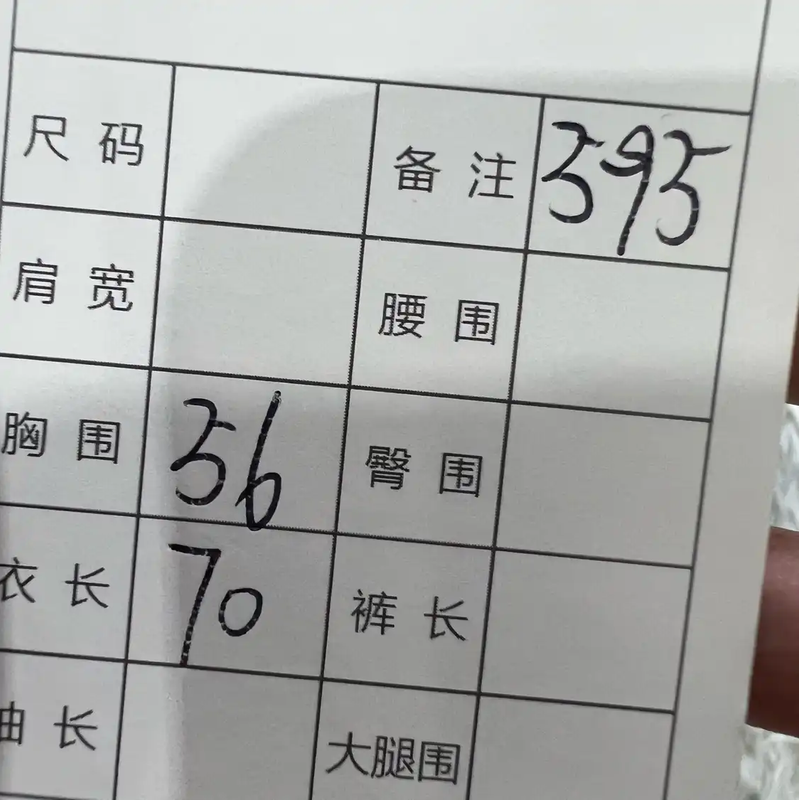 尺码 备注 595
肩宽 腰围
胸围 56 臀围
衣长 70 裤长
长 大腿围